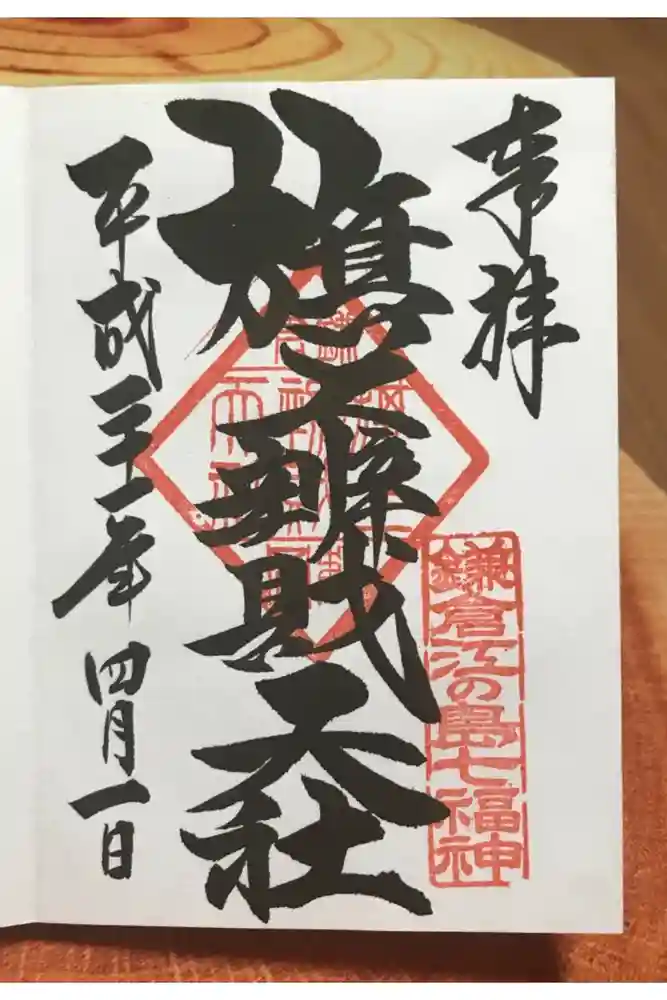 奉拝
鎌倉江の島七福神
旗上辨財天社
平成三十一年四月一日